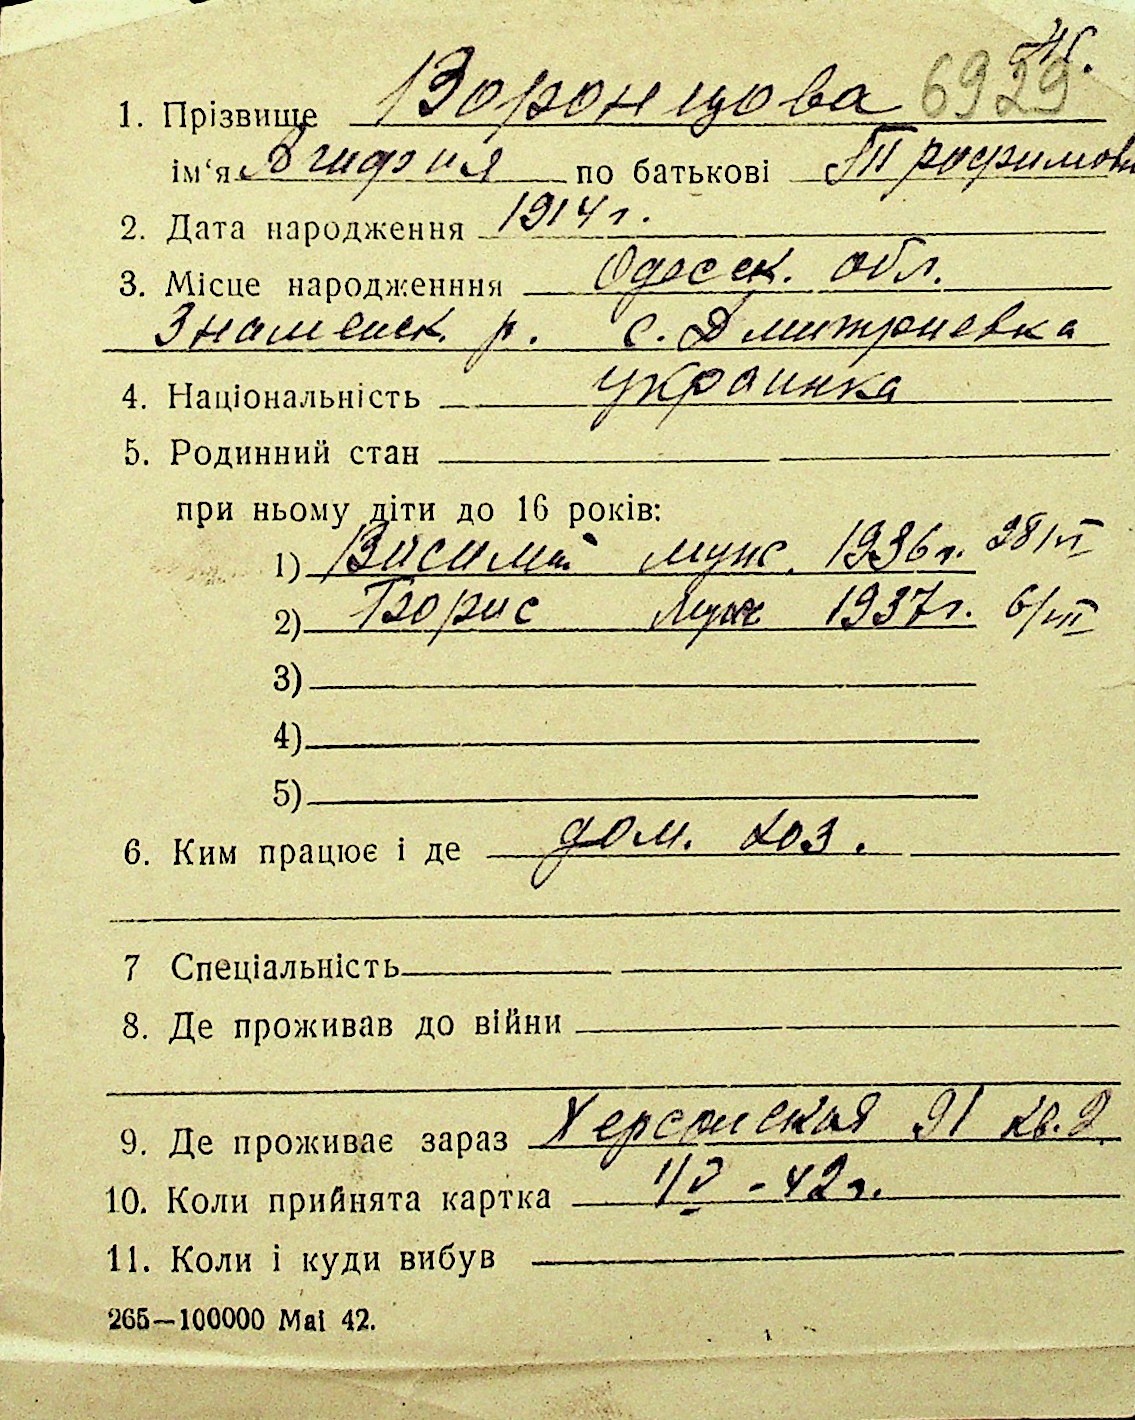 1. Прізвище Воронцова 6929
ім‘я Агифия по батькові Трофимовн
2. Дата народження 1914 г.
3. Місце народженння Одесск. обл.
Знаменск. р. с. Дмитриевка
4. Національність украинка
5. Родинний стан
при ньому діти до 16 років:
1) муж. 1936 г. 28/VI
2) Борис муж 1937 г. 6/VII
3)
4)
5)
6. Ким працює і де дом. хоз.
7 Спеціальність
8. Де проживав до війни
9. Де проживає зараз Херсонская 91 кв. 2.
10. Коли прийнята картка 1/V - 42 г.
11. Коли і куди вибув
265—100000 Mai 42.